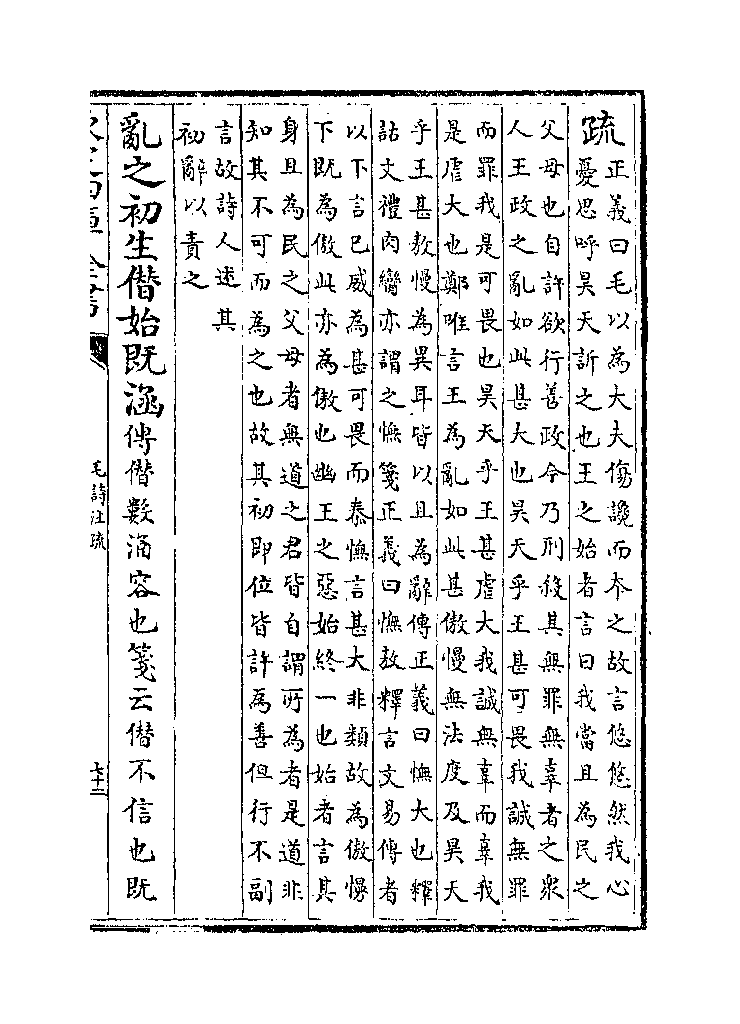 疏正義曰毛以為大夫傷讒而本之故言悠悠然我心
憂思呼昊天訴之也王之始者言曰我當且為民之
父母也自許欲行善政今乃刑殺其無罪無辜者之衆
人王政之亂如此甚大也昊天乎王甚可畏我誠無罪
而罪我是可畏也昊天乎王甚虐大我誠無辜而辜我
是虐大也鄭唯言王為亂如此甚傲慢無法度及昊天
乎王甚敖慢為異耳皆以且為辭傳正義曰憮大也釋
詁文禮肉臠亦謂之憮箋正義曰憮敖釋言文易傳者
以下言已威為甚可畏而泰憮言甚大非類故為傲慢
下既為傲此亦為傲也幽王之惡始終一也始者言其
身且為民之父母者無道之君皆自謂所為者是道非
知其不可而為之也故其初即位皆許為善但行不副
言故詩人述其
初辭以責之
亂之初生僭始既涵傳僭數涵容也箋云僭不信也既
毛詩注疏